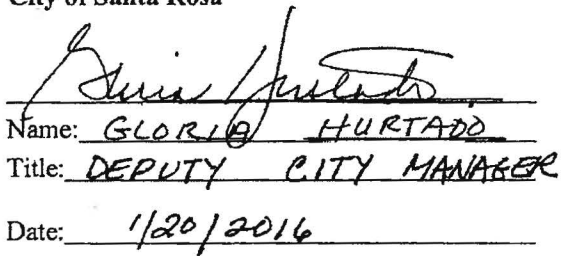 City of Santa Rosa
Gloria Hurtado
Name: GLORIA HURTADO
Title: DEPUTY CITY MANAGER
Date: 1/20/2016